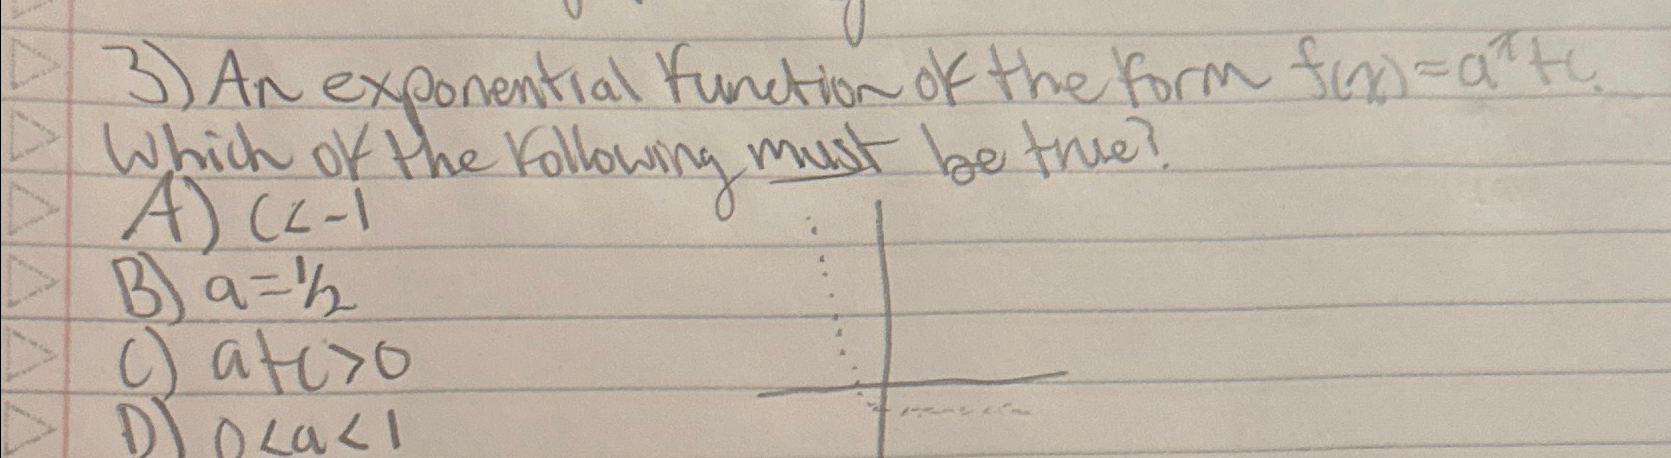 3) An exponential function of the form f(x) = aˣ + c.
Which of the following must be true?
A) c < -1
B) a = 1/2
C) a + c > 0
D) 0 < a < 1